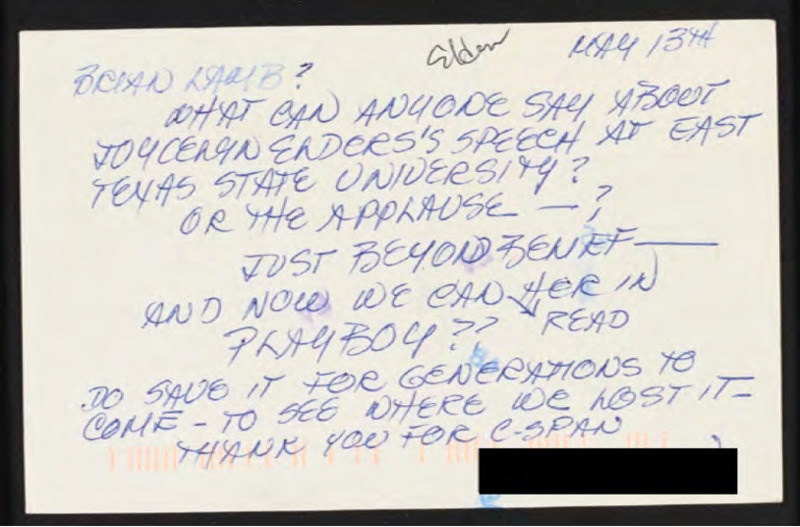 Elders
MAY 13TH
BRIAN LAMB?
WHAT CAN ANYONE SAY ABOUT
JOYCELYN ENDERS'S SPEECH AT EAST
TEXAS STATE UNIVERSITY?
OR THE APPLAUSE —?
JUST BEYOND BELIEF —
AND NOW WE CAN HER IN
READ
PLAYBOY??
DO SAVE IT FOR GENERATIONS TO
COME - TO SEE WHERE WE LOST IT -
THANK YOU FOR C-SPAN